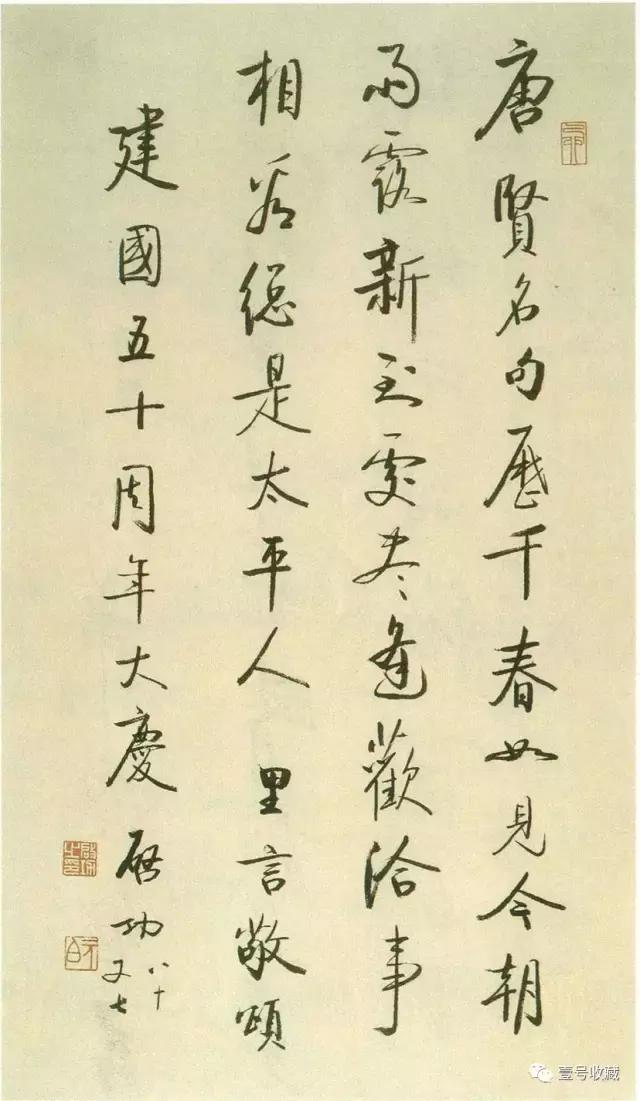 唐賢名句歷千春如見今朝
雨露新到處盡逢歡洽事
相看總是太平人 里言敬頌
建國五十周年大慶 啟功
八十
又七
啟功之印
壹号收藏